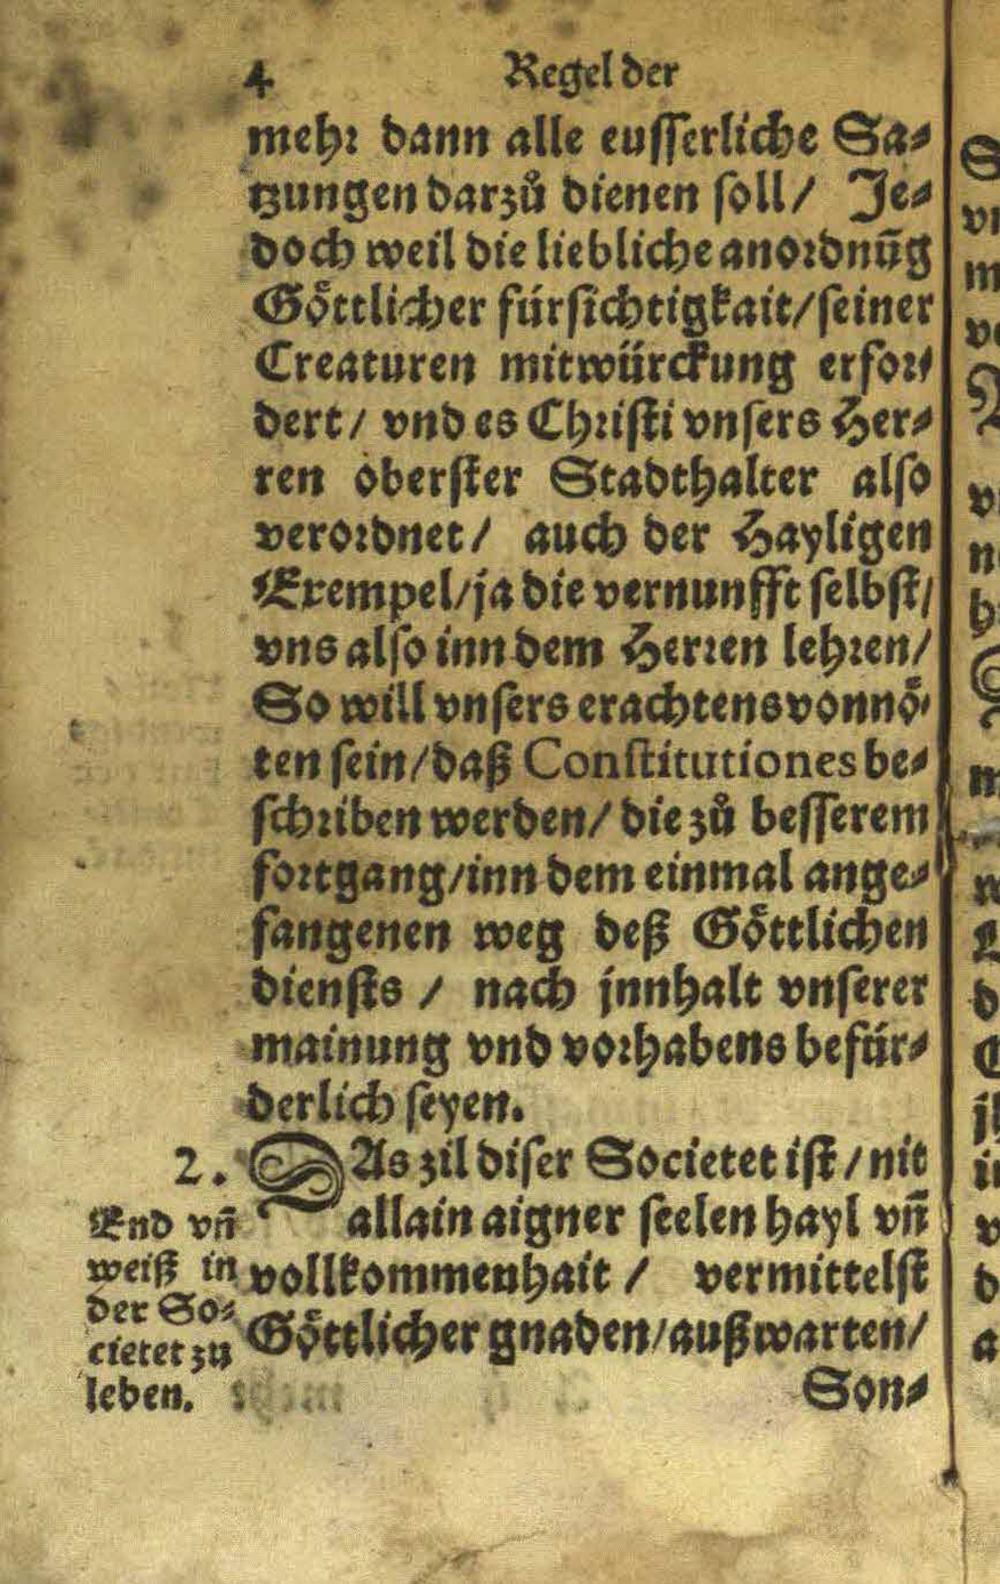 4 Regel der
mehr dann alle eusserliche Sa⸗
tzungen darzů dienen soll/ Je⸗
doch weil die liebliche anordnūg
Göttlicher fürsichtigkait/seiner
Creaturen mitwürckung erfor⸗
dert/ vnd es Christi vnsers Her⸗
ren oberster Stadthalter also
verordnet/ auch der Hayligen
Exempel/ja die vernunfft selbst/
vns also inn dem Herren lehren/
So will vnsers erachtens vonnö⸗
ten sein/daß Constitutiones be⸗
schriben werden/ die zů besserem
fortgang/inn dem einmal ange⸗
fangenen weg deß Göttlichen
diensts / nach jnnhalt vnserer
mainung vnd vorhabens befür⸗
derlich seyen.
2. DAs zil diser Societet ist/nit
allain aigner seelen hayl vn̄
vollkommenhait / vermittelst
Göttlicher gnaden/außwarten/
Son⸗
End vn̄
weiß in
der So⸗
cietet zu
leben.